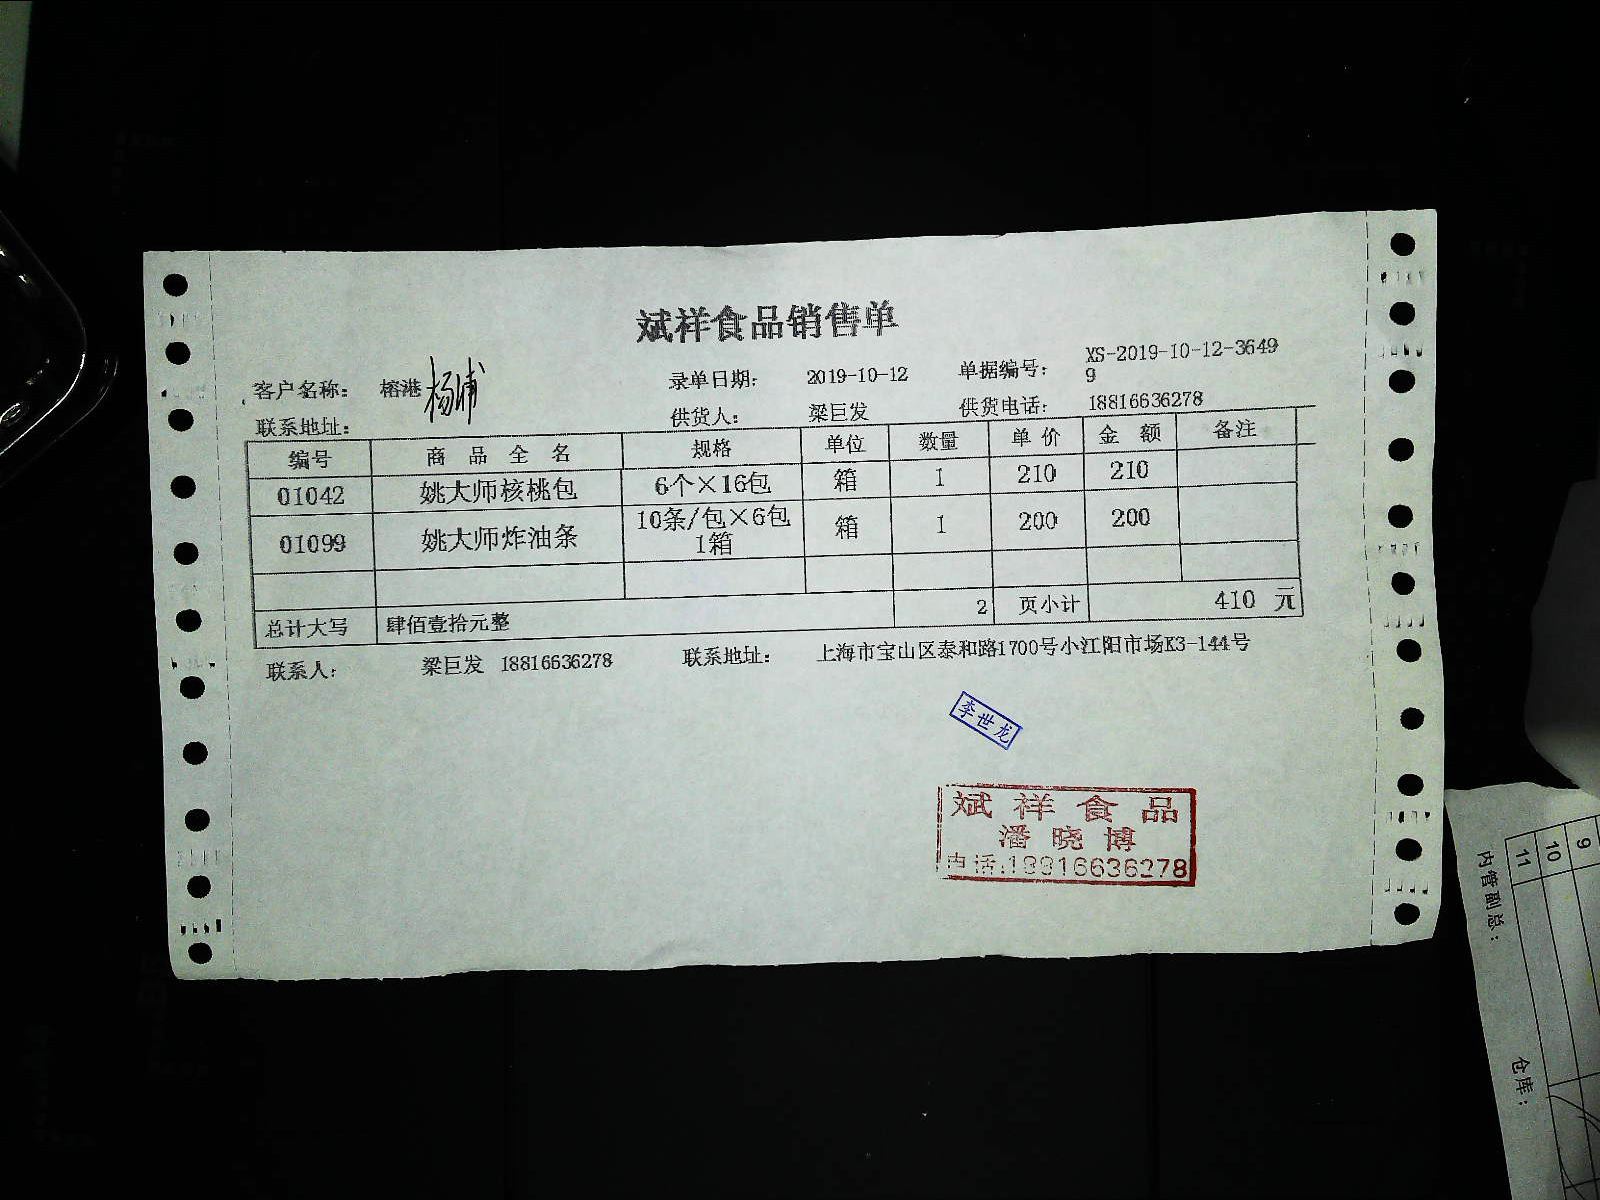 斌祥食品销售单
客户名称： 榕港 杨浦 录单日期： 2019-10-12 单据编号： XS-2019-10-12-3649
9
联系地址： 供货人： 梁巨发 供货电话： 18816636278
编号 商 品 全 名 规格 单位 数量 单 价 金 额 备注
01042 姚大师核桃包 6个×16包 箱 1 210 210
01099 姚大师炸油条 10条/包×6包 箱 1 200 200
1箱
总计大写 肆佰壹拾元整 2 页小计 410 元
联系人： 梁巨发 18816636278 联系地址： 上海市宝山区泰和路1700号小江阳市场K3-144号
李世龙
斌祥食品
潘晓博
电话:18816636278
9
10
11
内管副总：
仓库：